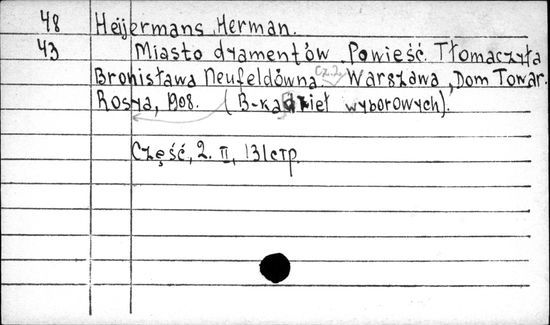 48 Heijermans Herman.
43 Miasto dyamentów. Powieść. Tłomaczyła
Bronisława Neufeldówna cz.2. Warszawa, Dom Towar.
Rosya, 1908. (B-ka dzieł wyborowych).
Część, 2. II, 131 стр.